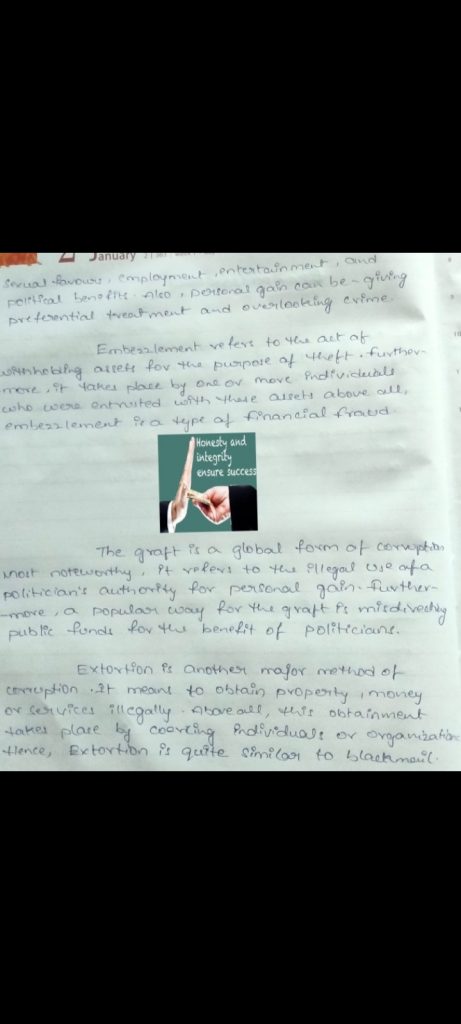 January
Sexual favours, employment, entertainment, and
political benefits. Also, personal gain can be - giving
preferential treatment and overlooking crime.
Embezzlement refers to the act of
withholding assets for the purpose of theft. Further-
more, it takes place by one or more individuals
who were entrusted with these assets above all,
embezzlement is a type of financial fraud.
Honesty and
integrity
ensure success
The graft is a global form of corruption
Most noteworthy, it refers to the illegal use of a
politician's authority for personal gain. Further-
-more, a popular way for the graft is misdirecting
public funds for the benefit of politicians.
Extortion is another major method of
corruption. It means to obtain property, money
or services illegally. Above all, this obtainment
takes place by coercing individuals or organization
Hence, Extortion is quite similar to blackmail.